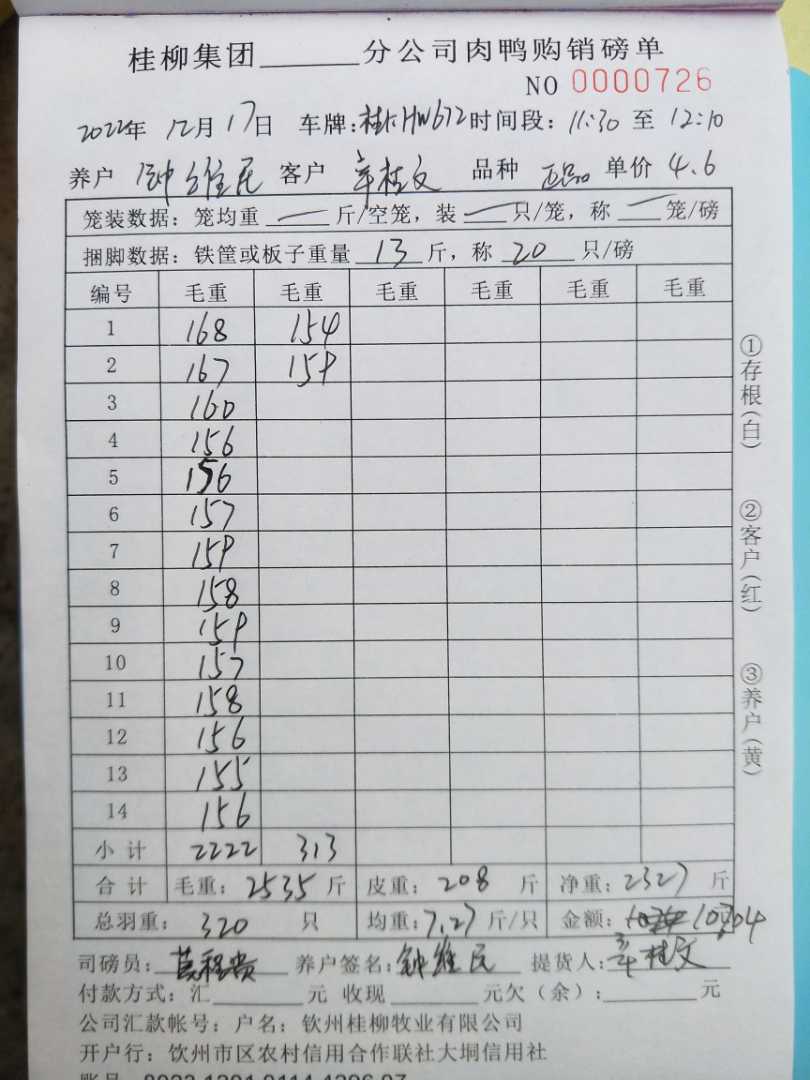 桂柳集团______分公司肉鸭购销磅单
NO 0000726
2022年 12月17日 车牌:桂KHW672 时间段: 11:30 至 12:10
养户 钟维民 客户 辛桂文 品种 正品 单价 4.6
笼装数据: 笼均重 — 斤/空笼, 装 — 只/笼, 称 — 笼/磅
捆脚数据: 铁筐或板子重量 13 斤, 称 20 只/磅
编号 毛重 毛重 毛重 毛重 毛重 毛重
1 168 154
2 167 159
3 160
4 156
5 156
6 157
7 159
8 158
9 159
10 157
11 158
12 156
13 155
14 156
小计 2222 313
合计 毛重: 2535 斤 皮重: 208 斤 净重: 2327 斤
总羽重: 320 只 均重: 7.27 斤/只 金额: 10704
司磅员: 养户签名: 钟维民 提货人: 辛桂文
付款方式: 汇______元 收现______元欠(余):______元
公司汇款帐号: 户名: 钦州桂柳牧业有限公司
开户行: 钦州市区农村信用合作联社大垌信用社
①存根(白)
②客户(红)
③养户(黄)